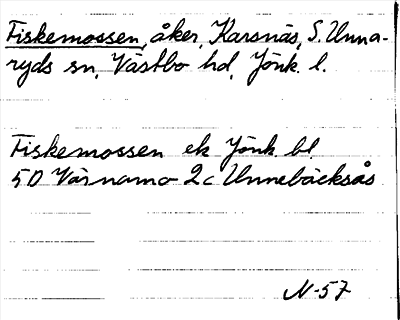 Fiskemossen, åker, Karsnäs, S. Unna-
ryds sn, Västbo hd, Jönk. l.
Fiskemossen ek Jönk. bl.
5D Värnamo 2c Unnebäcksås
N-57